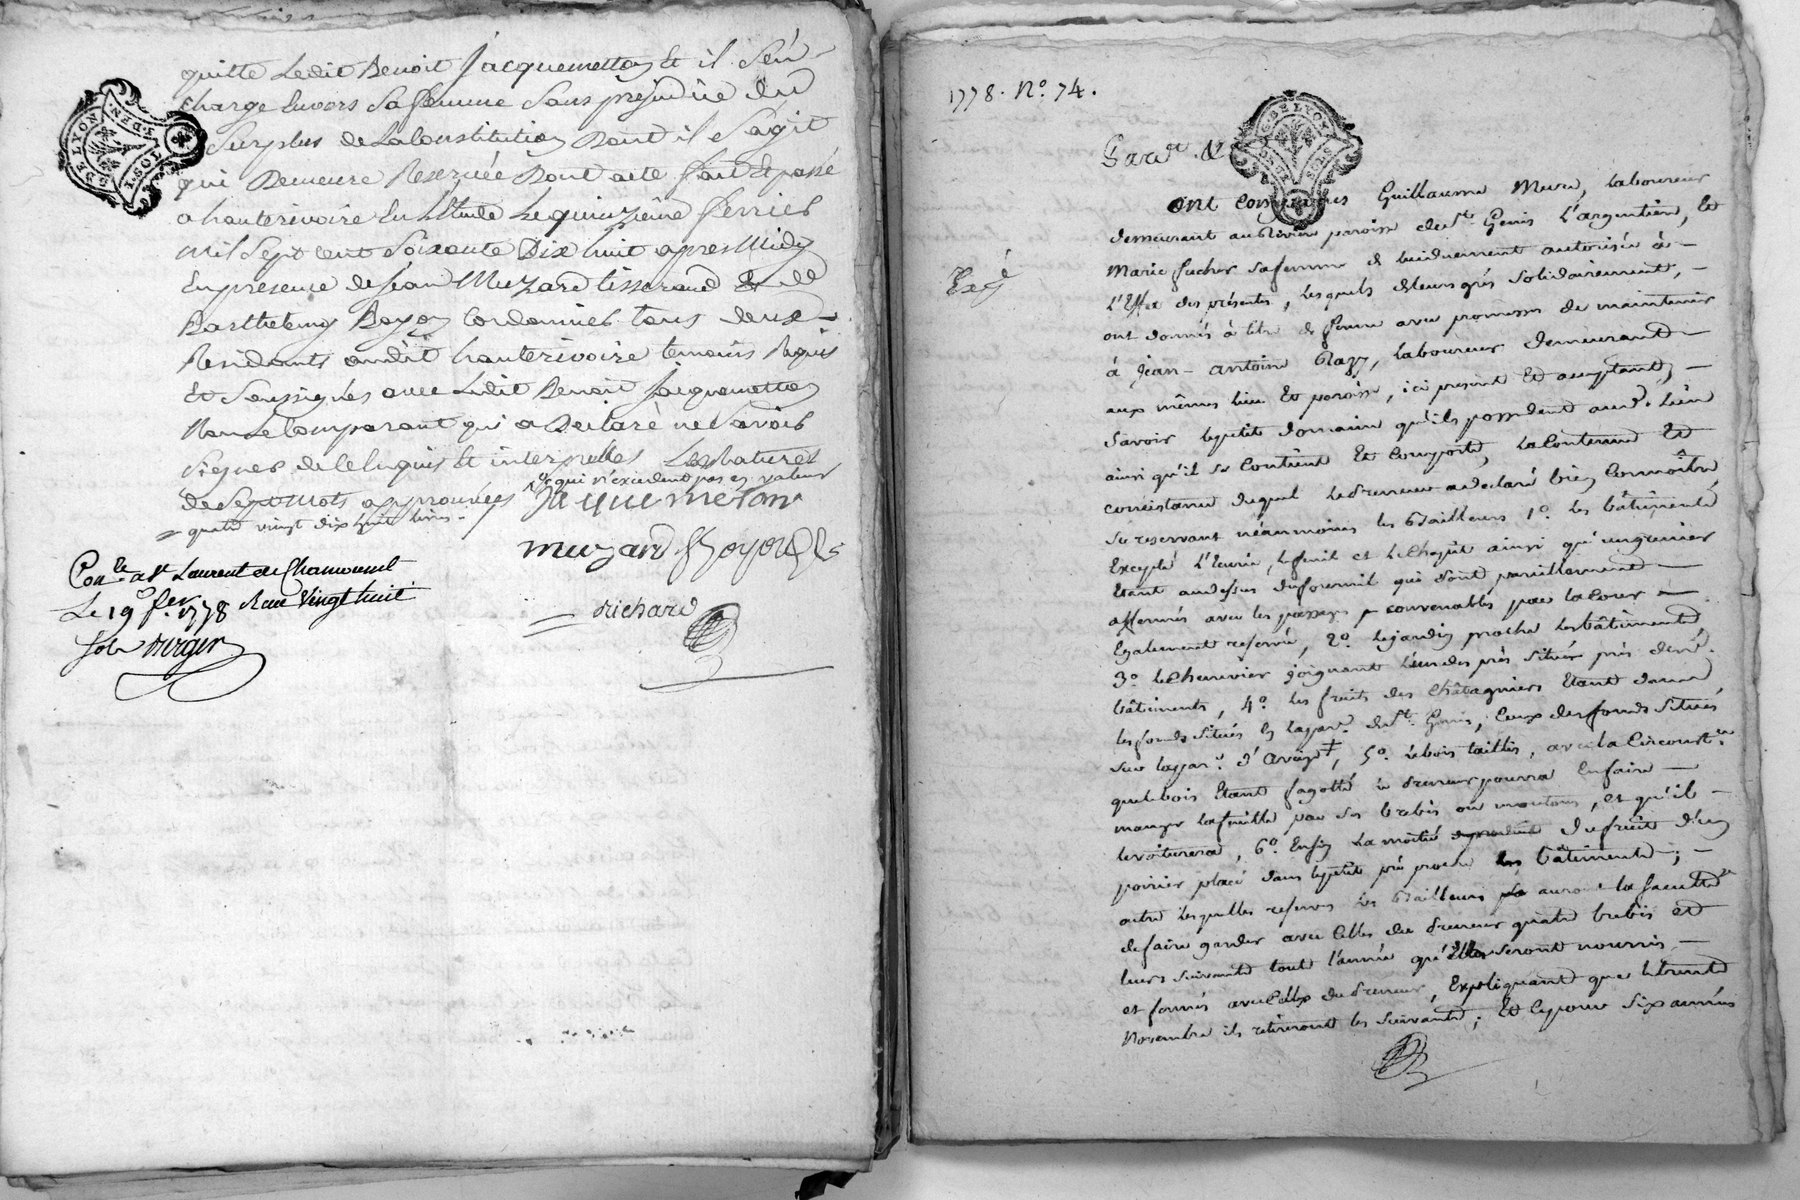 quitte Ledit Benoit Jacquemetton Et il S'en
charge Envers Sa femme Sans prejudice du
Surplus de La Constitution Dont il S'agit
qui Demeure Reservée Dont acte fait Et passé
a hauterivoire En L'Etude Le quinzième fevrier
mil Sept cent Soixante Dix huit apres Midy
En presence de Jean Muzard tisserand Et de
Barthelemy Boyon Cordonnier tous deux
Residants audit hauterivoire temoins Requis
Et Soussignés avec Ledit Benoit Jacquemetton
Non Le Comparant qui a Declaré ne Savoir
signer de Ce Enquis Et interpellés Les ratures
qui n'excedent pas en valeur
de Sept mots approuvées Jaquemeton
quatre vingt dix huit livres
muzard Boyon
Con.le a St Laurent de Chamousset
Le 19 fev.r 1778 Reçu Vingt huit
richard
S DE LYON
G. DE LYON
1778. N° 74.
ont Guillaume laboureur
demeurant au Rivier paroisse de St. Genis L'argentière, Et
Marie sa femme de lui duement autorisée à
L'Effet des présentes, Lesquels de leurs grés solidairement,
ont donnés à titre de ferme avec promesses de maintenir
à Jean-antoine, laboureur demeurant
aux mêmes lieu Et paroisse, ici present Et acceptant,
Savoir le petit domaine qu'ils possedent aud. Lieu
ainsi qu'il Se Contient Et Comporte, la Contenue Et
consistance duquel Le preneur a declaré bien Connoitre
se reservant néanmoins les Bailleurs 1°. les bâtiments
Excepté L'Ecurie, le fenil et Le Chapit ainsi qu'un grenier
Etant au dessus du four qui sont pareillement
affermés avec les passages convenables par la Cour
Egalement reservé, 2°. Le jardin proche les bâtiments,
3°. le Chenevier joignant L'un des prés situés près desd.
bâtiments, 4°. les fruits des Châtagniers Etant dans
les fonds situés En la par. de St. Genis, Ceux des fonds situés
Sur la par. d'Aveize, 5°. le bois taillis, avec la Circonst.ce
que le bois Etant fagotté le preneur pourra En faire
manger la feuille par Ses brebis ou moutons, et qu'il
le voiturera, 6°. Enfin La moitié du fruit d'un
poirier placé dans le petit pré proche les bâtiments;
outre lesquelles reserves les Bailleurs auront la faculté
de faire garder avec Celles du preneur quatre brebis et
leurs suivants tout l'année qu'Elles seront nourris
et avec Celles du preneur, Expliquant que le trente
Novembre ils retireront les suivants; Et Ce pour six années